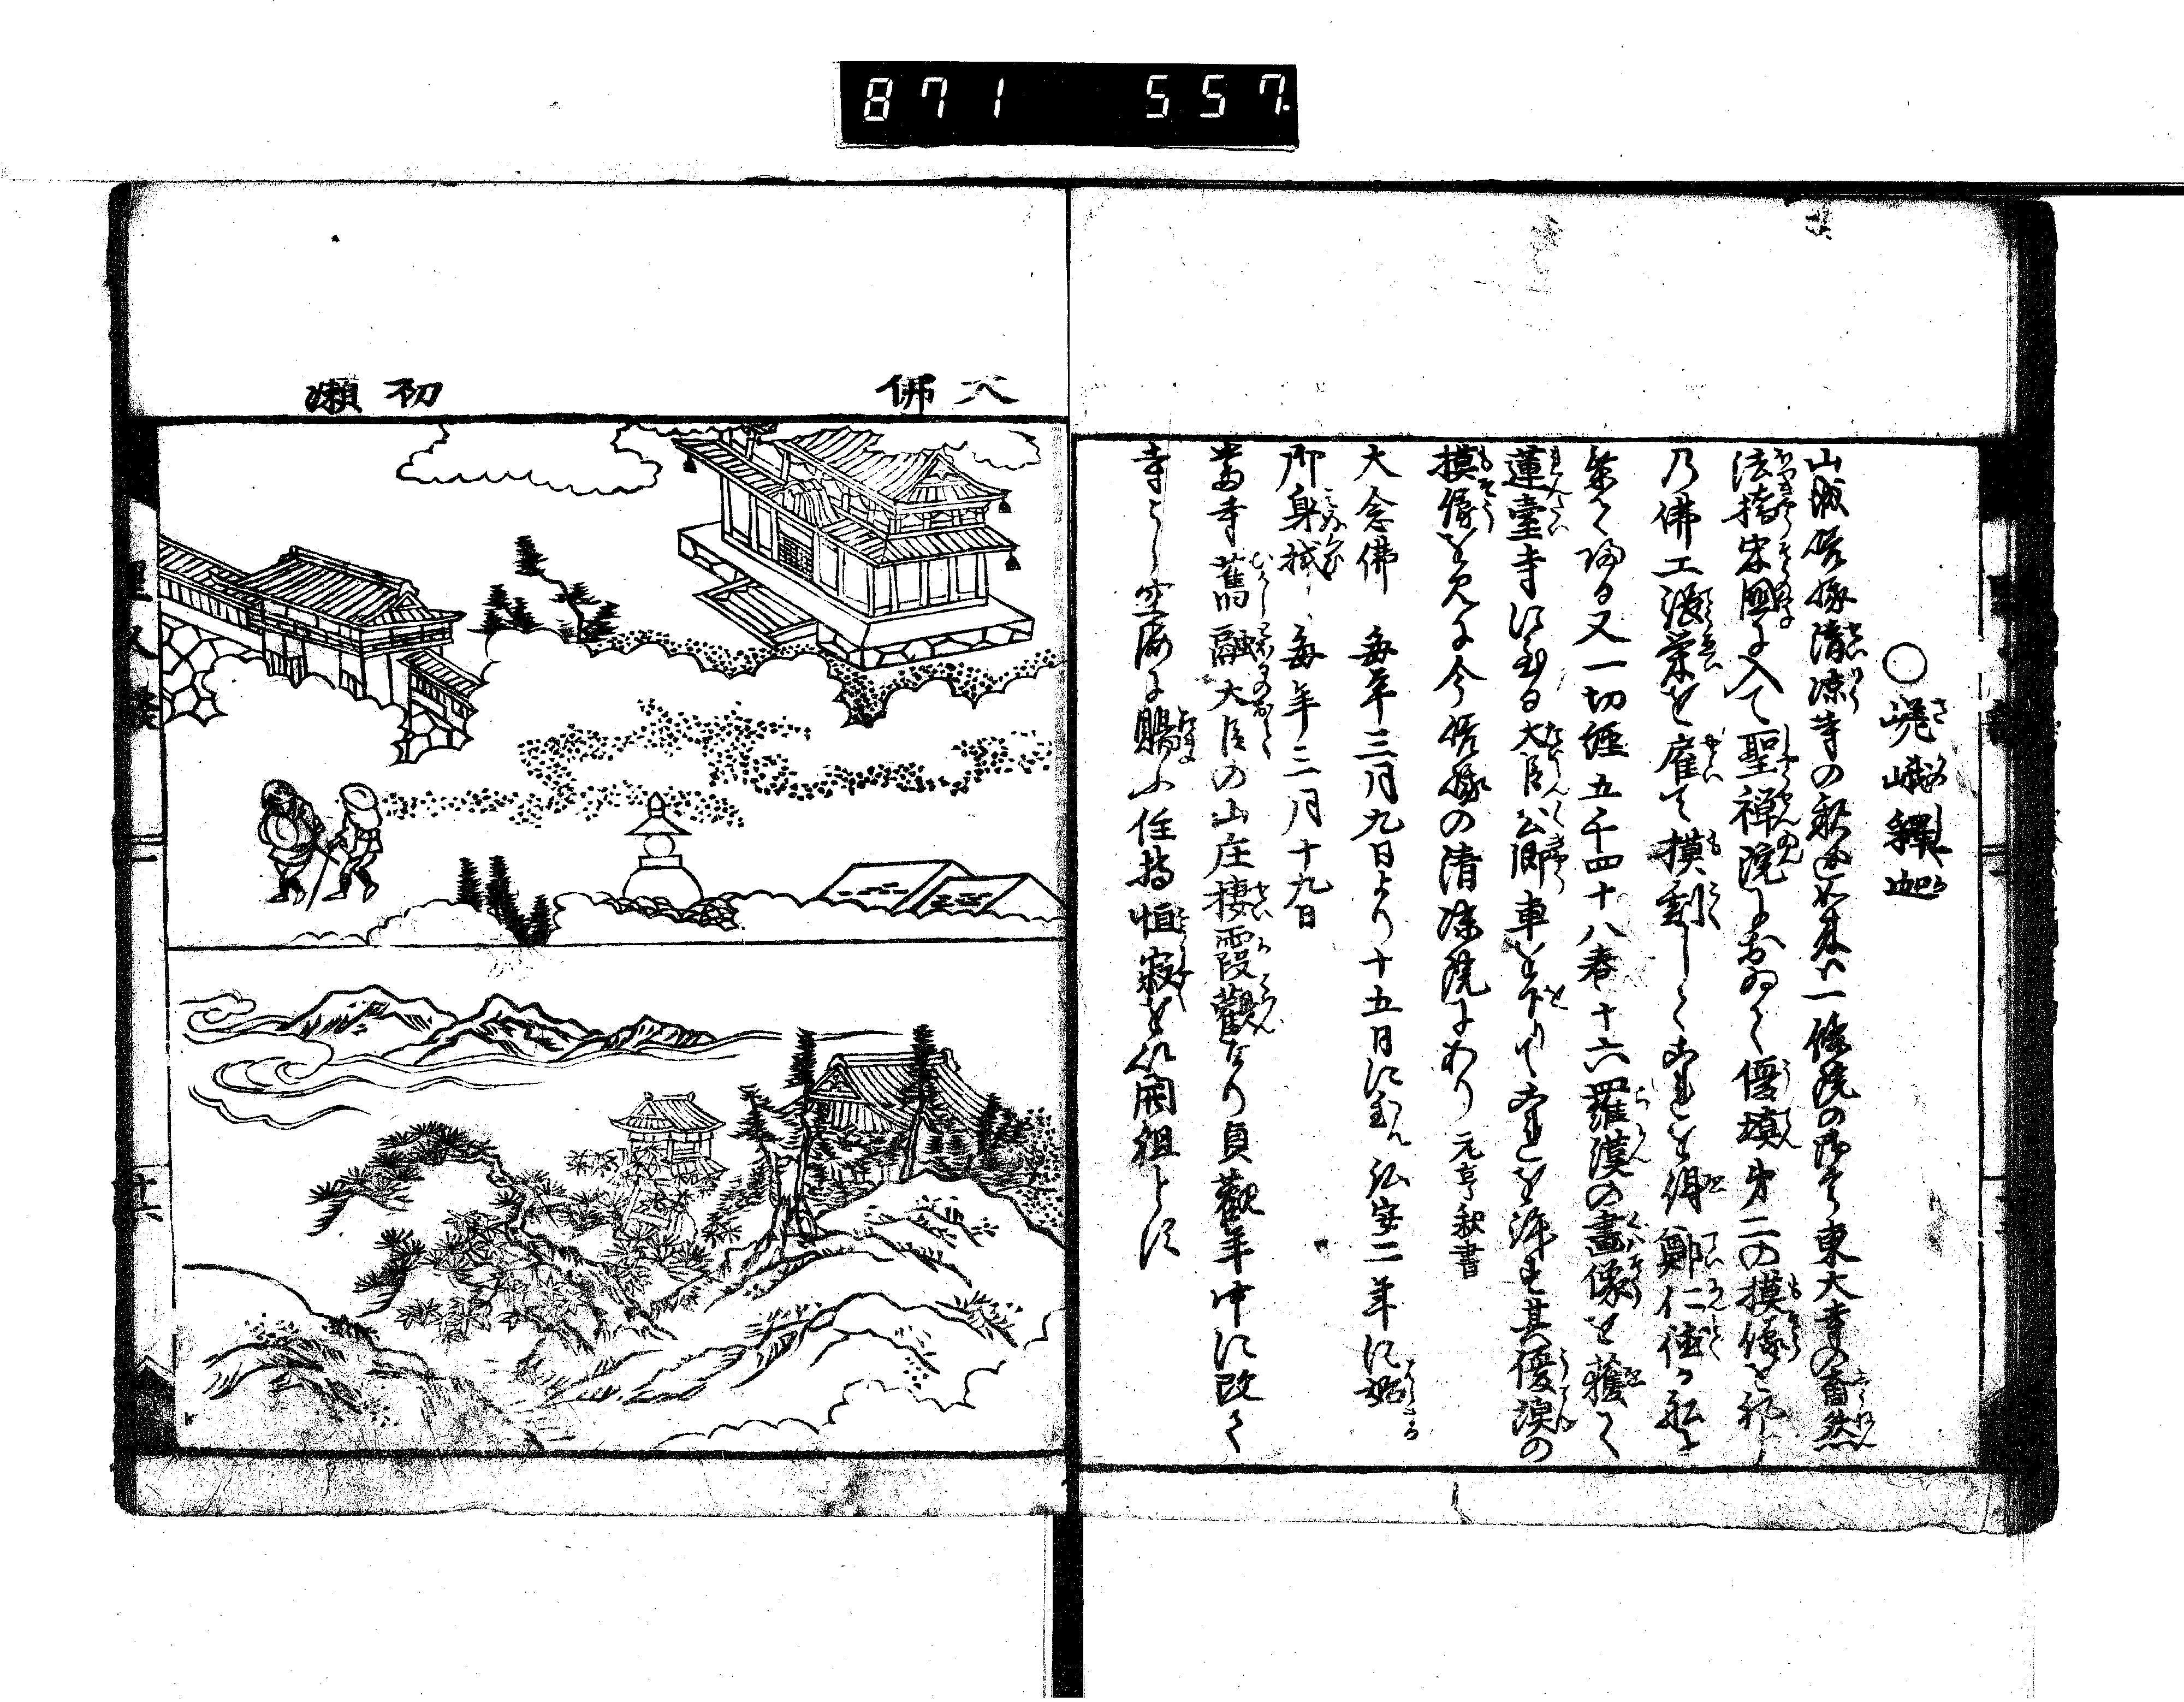 871 557
○嵯峨釋迦
山城嵯峨清凉寺の釈迦如来ハ一條院の御宇東大寺の奝然
法橋宋國に入て聖禅院におゐて優塡第二の摸像を礼し
乃佛工張栄を雇て摸刻してこれを得鄭仁德か船に
乗て帰る又一切経五千四十八巻十六羅漢の畫像を獲て
蓮臺寺に至る大臣公卿車を下りてこれを拝す其優塡の
摸像を見るに今嵯峨の清凉院にあり 元亨釈書
大念佛 毎年三月九日より十五日に至ル弘安二年に始
御身拭 毎年三月十九日
當寺舊融大臣の山庄棲霞觀なり貞觀年中に改て
寺とし空海に賜ふ住持恒寂を以開祖とす
大佛
初瀬